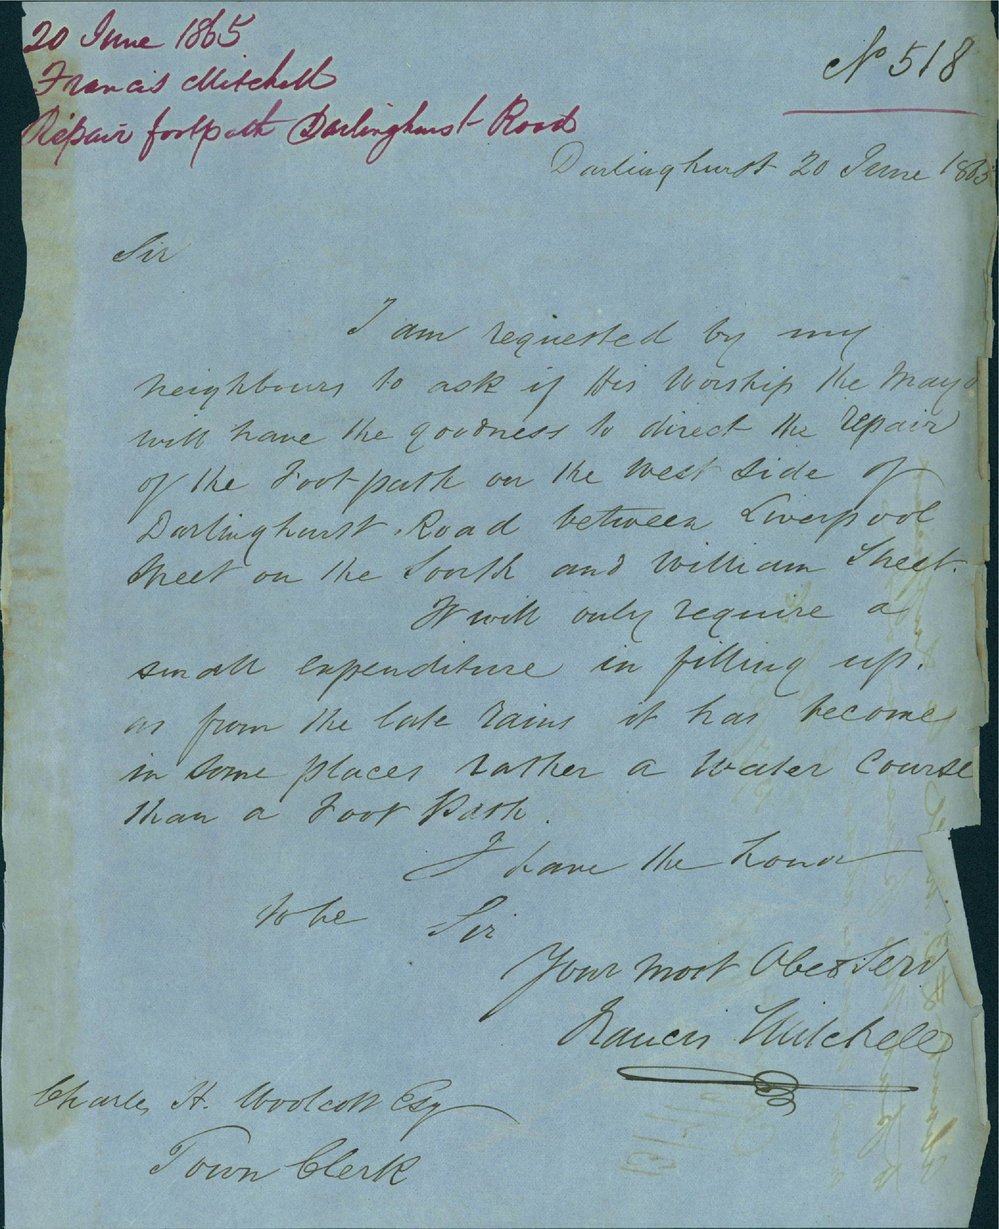 20 June 1865
Francis Mitchell
Repair footpath Darlinghurst Road
No 518
Darlinghurst 20 June 1865
Sir
I am requested by my
neighbours to ask if His Worship the Mayo
will have the goodness to direct the repair
of the Foot path on the West Side of
Darlinghurst Road between Liverpool
Street on the South and William Street.
It will only require a
small expenditure in filling up.
as from the late rains it has become
in some places rather a Water Course
than a Foot Path.
I have the honor
to be Sir
Your most Obed Serv
Francis Mitchell
Charles H. Woolcott Esq
Town Clerk